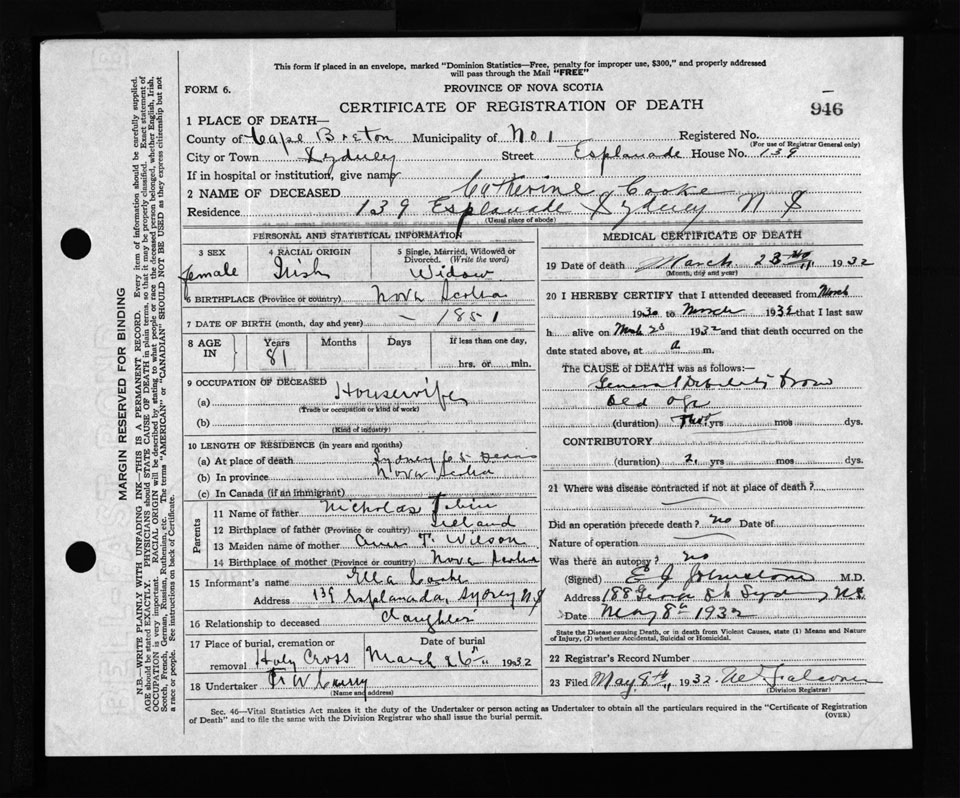 This form if placed in an envelope, marked "Dominion Statistics—Free, penalty for improper use, $300," and properly addressed
will pass through the Mail "FREE"
FORM 6.
PROVINCE OF NOVA SCOTIA
CERTIFICATE OF REGISTRATION OF DEATH
946
1 PLACE OF DEATH—
County of Cape Breton Municipality of No 1 Registered No.
(For use of Registrar General only)
City or Town Sydney Street Esplanade House No. 139
If in hospital or institution, give name
2 NAME OF DECEASED Catherine Cooke
Residence 139 Esplanade Sydney N S
(Usual place of abode)
PERSONAL AND STATISTICAL INFORMATION
3 SEX 4 RACIAL ORIGIN 5 Single, Married, Widowed or
Divorced. (Write the word)
female Irish Widow
6 BIRTHPLACE (Province or country) Nova Scotia
7 DATE OF BIRTH (month, day and year) — 1851
8 AGE IN Years Months Days If less than one day,
81 hrs. or min.
9 OCCUPATION OF DECEASED
(a) Housewife
(Trade or occupation or kind of work)
(b)
(Kind of industry)
10 LENGTH OF RESIDENCE (in years and months)
(a) At place of death Sydney 65 years
(b) In province Nova Scotia
(c) In Canada (if an immigrant)
Parents
11 Name of father Nicholas Tobin
12 Birthplace of father (Province or country) Ireland
13 Maiden name of mother Ann T. Wilson
14 Birthplace of mother (Province or country) Nova Scotia
15 Informant's name Ella Cooke
Address 139 Esplanada, Sydney NS
16 Relationship to deceased Daughter
17 Place of burial, cremation or Date of burial
removal Holy Cross March 26th 1932
18 Undertaker F W Curry
(Name and address)
MEDICAL CERTIFICATE OF DEATH
19 Date of death March 23 1932
(Month, day and year)
20 I HEREBY CERTIFY that I attended deceased from March
1930 to March 1932 that I last saw
h alive on March 23 1932 and that death occurred on
date stated above, at a m.
The CAUSE of DEATH was as follows:—
General Debility from
Old age
(duration) Two yrs mos dys.
CONTRIBUTORY
(duration) 2 yrs mos dys.
21 Where was disease contracted if not at place of death?
Did an operation precede death? no Date of
Nature of operation
Was there an autopsy? no
(Signed) E J Johnstone M.D.
Address 188 George St Sydney NS
Date May 8th 1932
State the Disease causing Death, or in death from Violent Causes, state (1) Means and Nature
of Injury, (2) whether Accidental, Suicidal or Homicidal.
22 Registrar's Record Number
23 Filed May 8th 1932 Falconer
(Division Registrar)
Sec. 46—Vital Statistics Act makes it the duty of the Undertaker or person acting as Undertaker to obtain all the particulars required in the "Certificate of Registration
of Death" and to file the same with the Division Registrar who shall issue the burial permit.
(OVER)
MARGIN RESERVED FOR BINDING
N.B.—WRITE PLAINLY WITH UNFADING INK—THIS IS A PERMANENT RECORD. Every item of information should be carefully supplied.
AGE should be stated EXACTLY. PHYSICIANS should STATE CAUSE OF DEATH in plain terms, so that it may be properly classified. Exact statement of
OCCUPATION is very important. RACIAL ORIGIN will be described by stating to what people or race the deceased person belonged, whether English, Irish,
Scotch, French, German, Russian, Ruthenian, etc. The terms "AMERICAN" or "CANADIAN" SHOULD NOT BE USED as they express citizenship but not
a race or people. See instructions on back of Certificate.